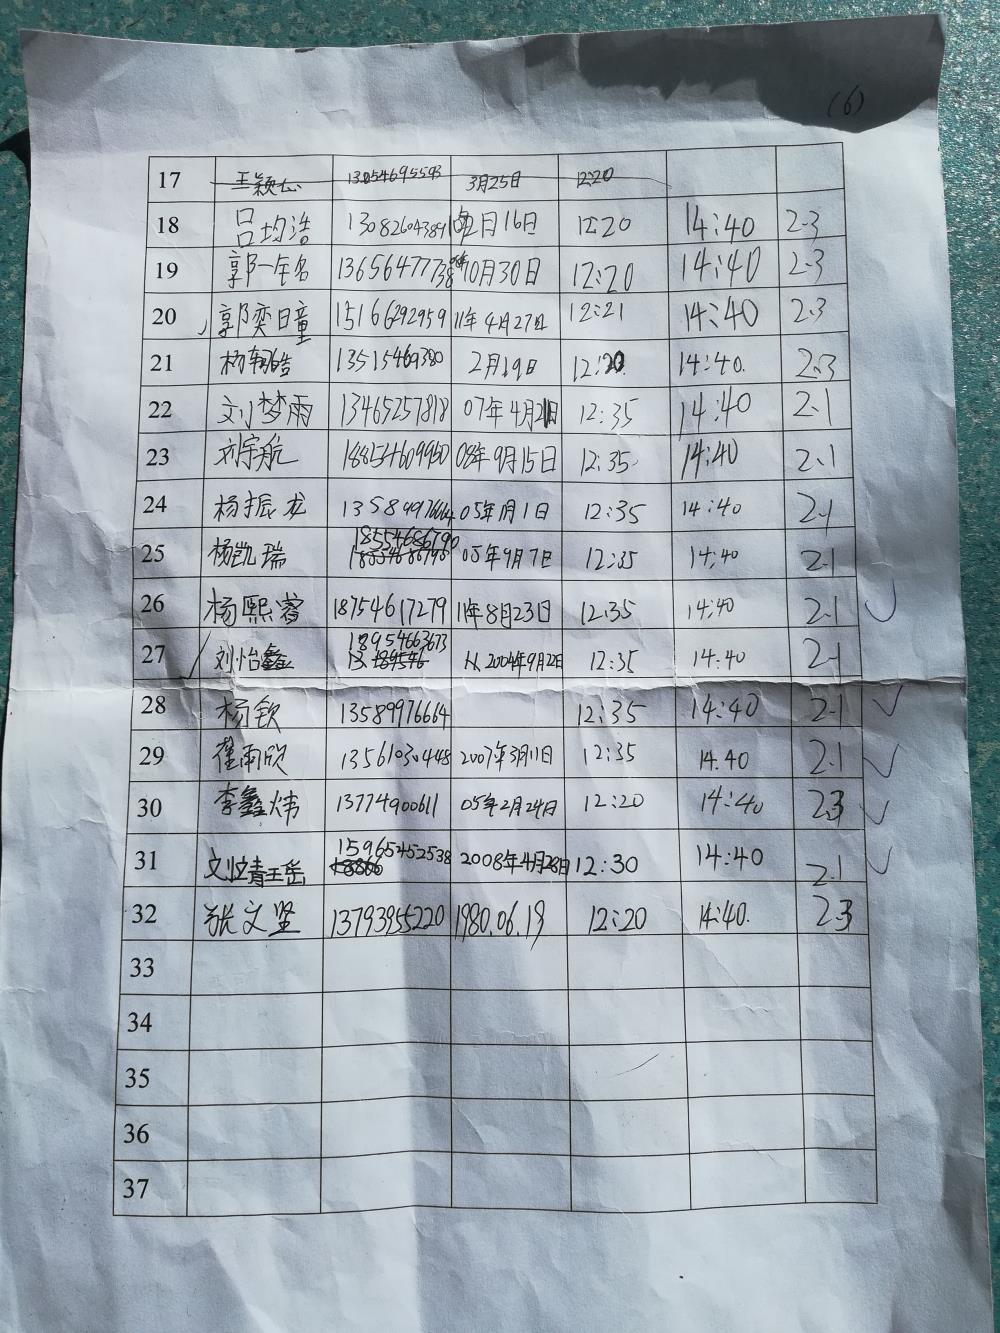 (6)
17 3月25日 12:20
18 吕均浩 13082604389 2月16日 12:20 14:40 2.3
19 郭一名 13656477738 10月30日 12:20 14:40 2.3
20 郭奕日童 15166292959 11年4月27日 12:21 14:40 2.3
21 杨 13515469380 2月19日 12:20 14:40. 2.3
22 刘梦雨 13465257818 07年4月21日 12:35 14:40 2.1
23 刘宇航 18854609950 08年9月15日 12:35 14:40 2.1
24 杨振龙 13589976664 05年1月1日 12:35 14:40 2.1
25 杨凯瑞 18554686790 05年9月7日 12:35 14:40 2.1
26 杨熙蓉 18754617279 11年8月23日 12:35 14:40 2.1
27 刘怡鑫 18954663673 2004年9月22日 12:35 14:40 2.1
28 杨钦 13589976664 12:35 14:40 2.1
29 崔雨欣 13561030448 2007年3月11日 12:35 14.40 2.1
30 李鑫炜 13774900611 05年2月24日 12:20 14:40 2.3
31 15965452538 2008年4月28日 12:30 14:40 2.1
32 张文坚 13793955220 1980.06.19 12:20 14:40. 2.3
33
34
35
36
37